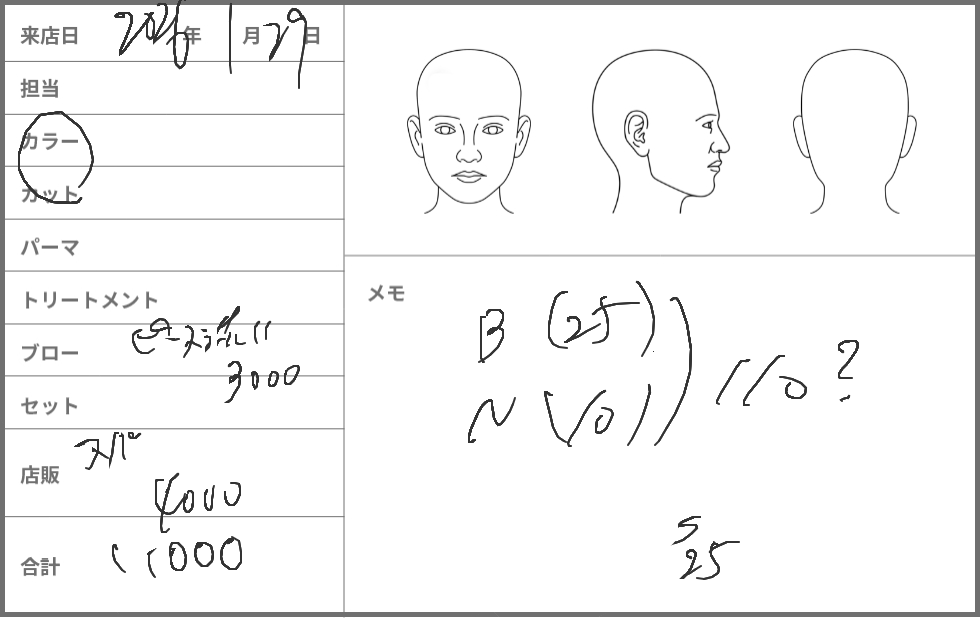 来店日 2026年 1月29日
担当
カラー
カット
パーマ
トリートメント
ブロー
3000
セット
スパ
店販
4000
合計 11000
メモ
B (25)
N (10) 110?
5
25